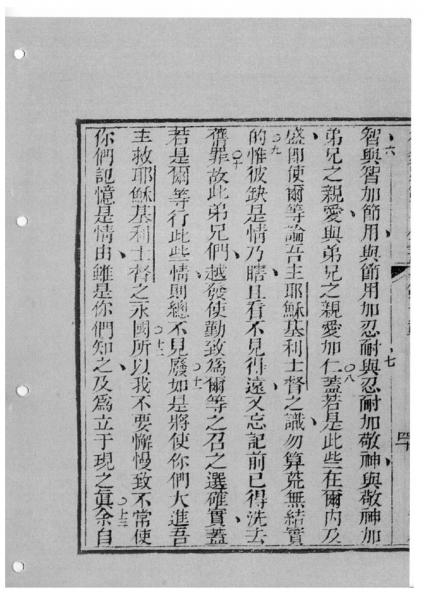 六智與智加節用與節用加忍耐與忍耐加敬神七與敬神加
弟兄之親愛與弟兄之親愛加仁八蓋若是此些在爾內及
盛即使爾等諭吾主耶穌基利士督之識勿算荒無結實
的九惟彼缺是情乃瞎且看不見得遠又忘記前已得洗去
舊罪十故此弟兄們越發使勤致為爾等之召之選確實蓋
若是爾等行此些情則總不見廢十一如是將使你們大進吾
主救耶穌基利士督之永國十二所以我不要懈慢致不常使
你們記憶是情由雖是你們知之及為立于現之眞十三余自